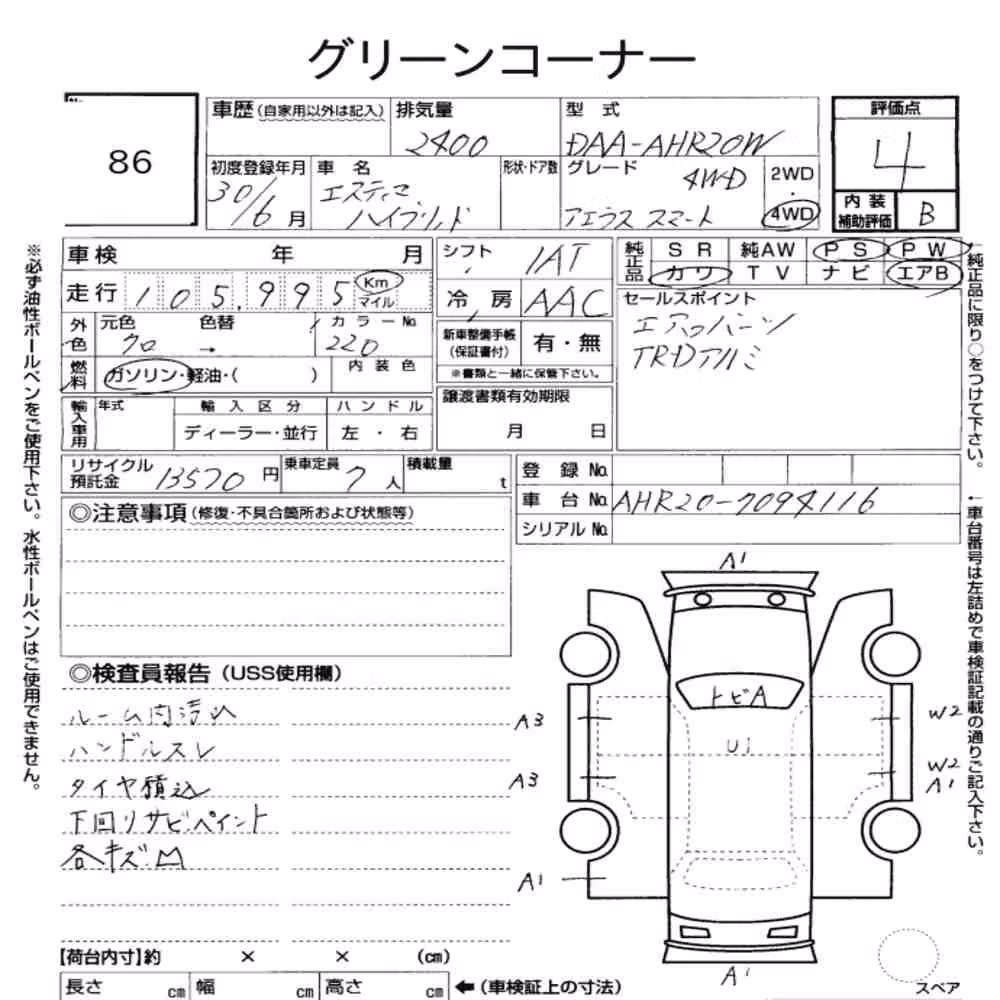 グリーンコーナー
86
車歴 (自家用以外は記入) 排気量 型 式 評価点
2400 DAA-AHR20W 4
初度登録年月 車 名 形状・ドア数 グレード 2WD
30/6 月 エスティマ 4WD ・
ハイブリッド アエラス スマート 4WD
内 装 補助評価 B
車検 年 月 シフト IAT
純正品 SR 純AW PS PW
カワ TV ナビ エアB
走行 105,995 Km マイル
冷 房 AAC
セールスポイント
エアロパーツ
TRDアルミ
外色 元色 色替 カラーNo.
クロ → 220
新車整備手帳 (保証書付) 有・無
※書類と一緒に保管下さい。
燃料 ガソリン・軽油・( ) 内 装 色
譲渡書類有効期限
月 日
輸入車用 年式 輸 入 区 分 ハ ン ド ル
ディーラー・並行 左 ・ 右
リサイクル預託金 13570 円 乗車定員 7 人 積載量 t
登 録 No.
車 台 No. AHR20-7094116
シリアル No.
◎注意事項 (修復・不具合箇所および状態等)
◎検査員報告 (USS使用欄)
ルーム内汚れ
ハンドルスレ
タイヤ積込
下回りサビ・ペイント
各キズ凹
A1
トビA
U1
A3
W2
A3
W2
A1
A1
A1
スペア
【荷台内寸】約 × × (cm)
長さ cm 幅 cm 高さ cm ←(車検証上の寸法)
※必ず油性ボールペンをご使用下さい。水性ボールペンはご使用できません。
↑純正品に限り○をつけて下さい。
↑車台番号は左詰めで車検証記載の通りご記入下さい。